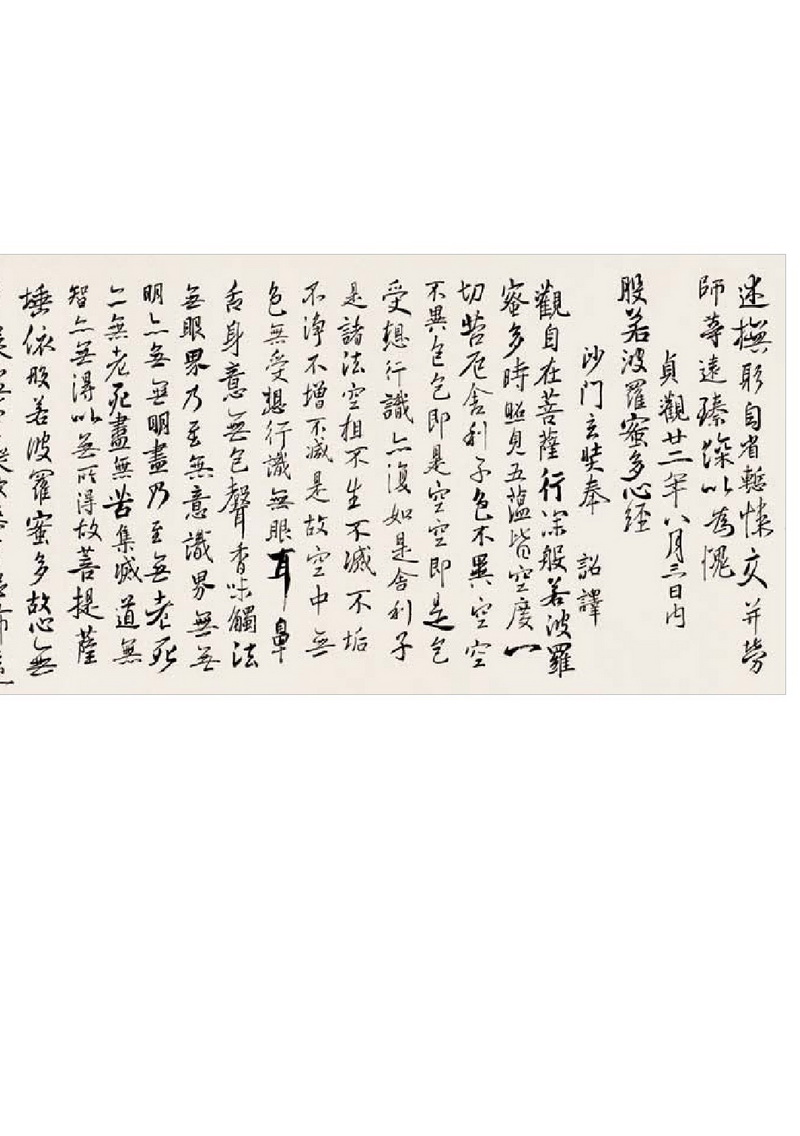 迷撫躬自省慙悚交并勞
師等遠臻深以為愧
貞觀廿二年八月三日內
般若波羅蜜多心經
沙門玄奘奉 詔譯
觀自在菩薩行深般若波羅
蜜多時照見五蘊皆空度一
切苦厄舍利子色不異空空
不異色色即是空空即是色
受想行識亦復如是舍利子
是諸法空相不生不滅不垢
不淨不增不減是故空中無
色無受想行識無眼耳鼻
舌身意無色聲香味觸法
無眼界乃至無意識界無無
明亦無無明盡乃至無老死
亦無老死盡無苦集滅道無
智亦無得以無所得故菩提薩
埵依般若波羅蜜多故心無